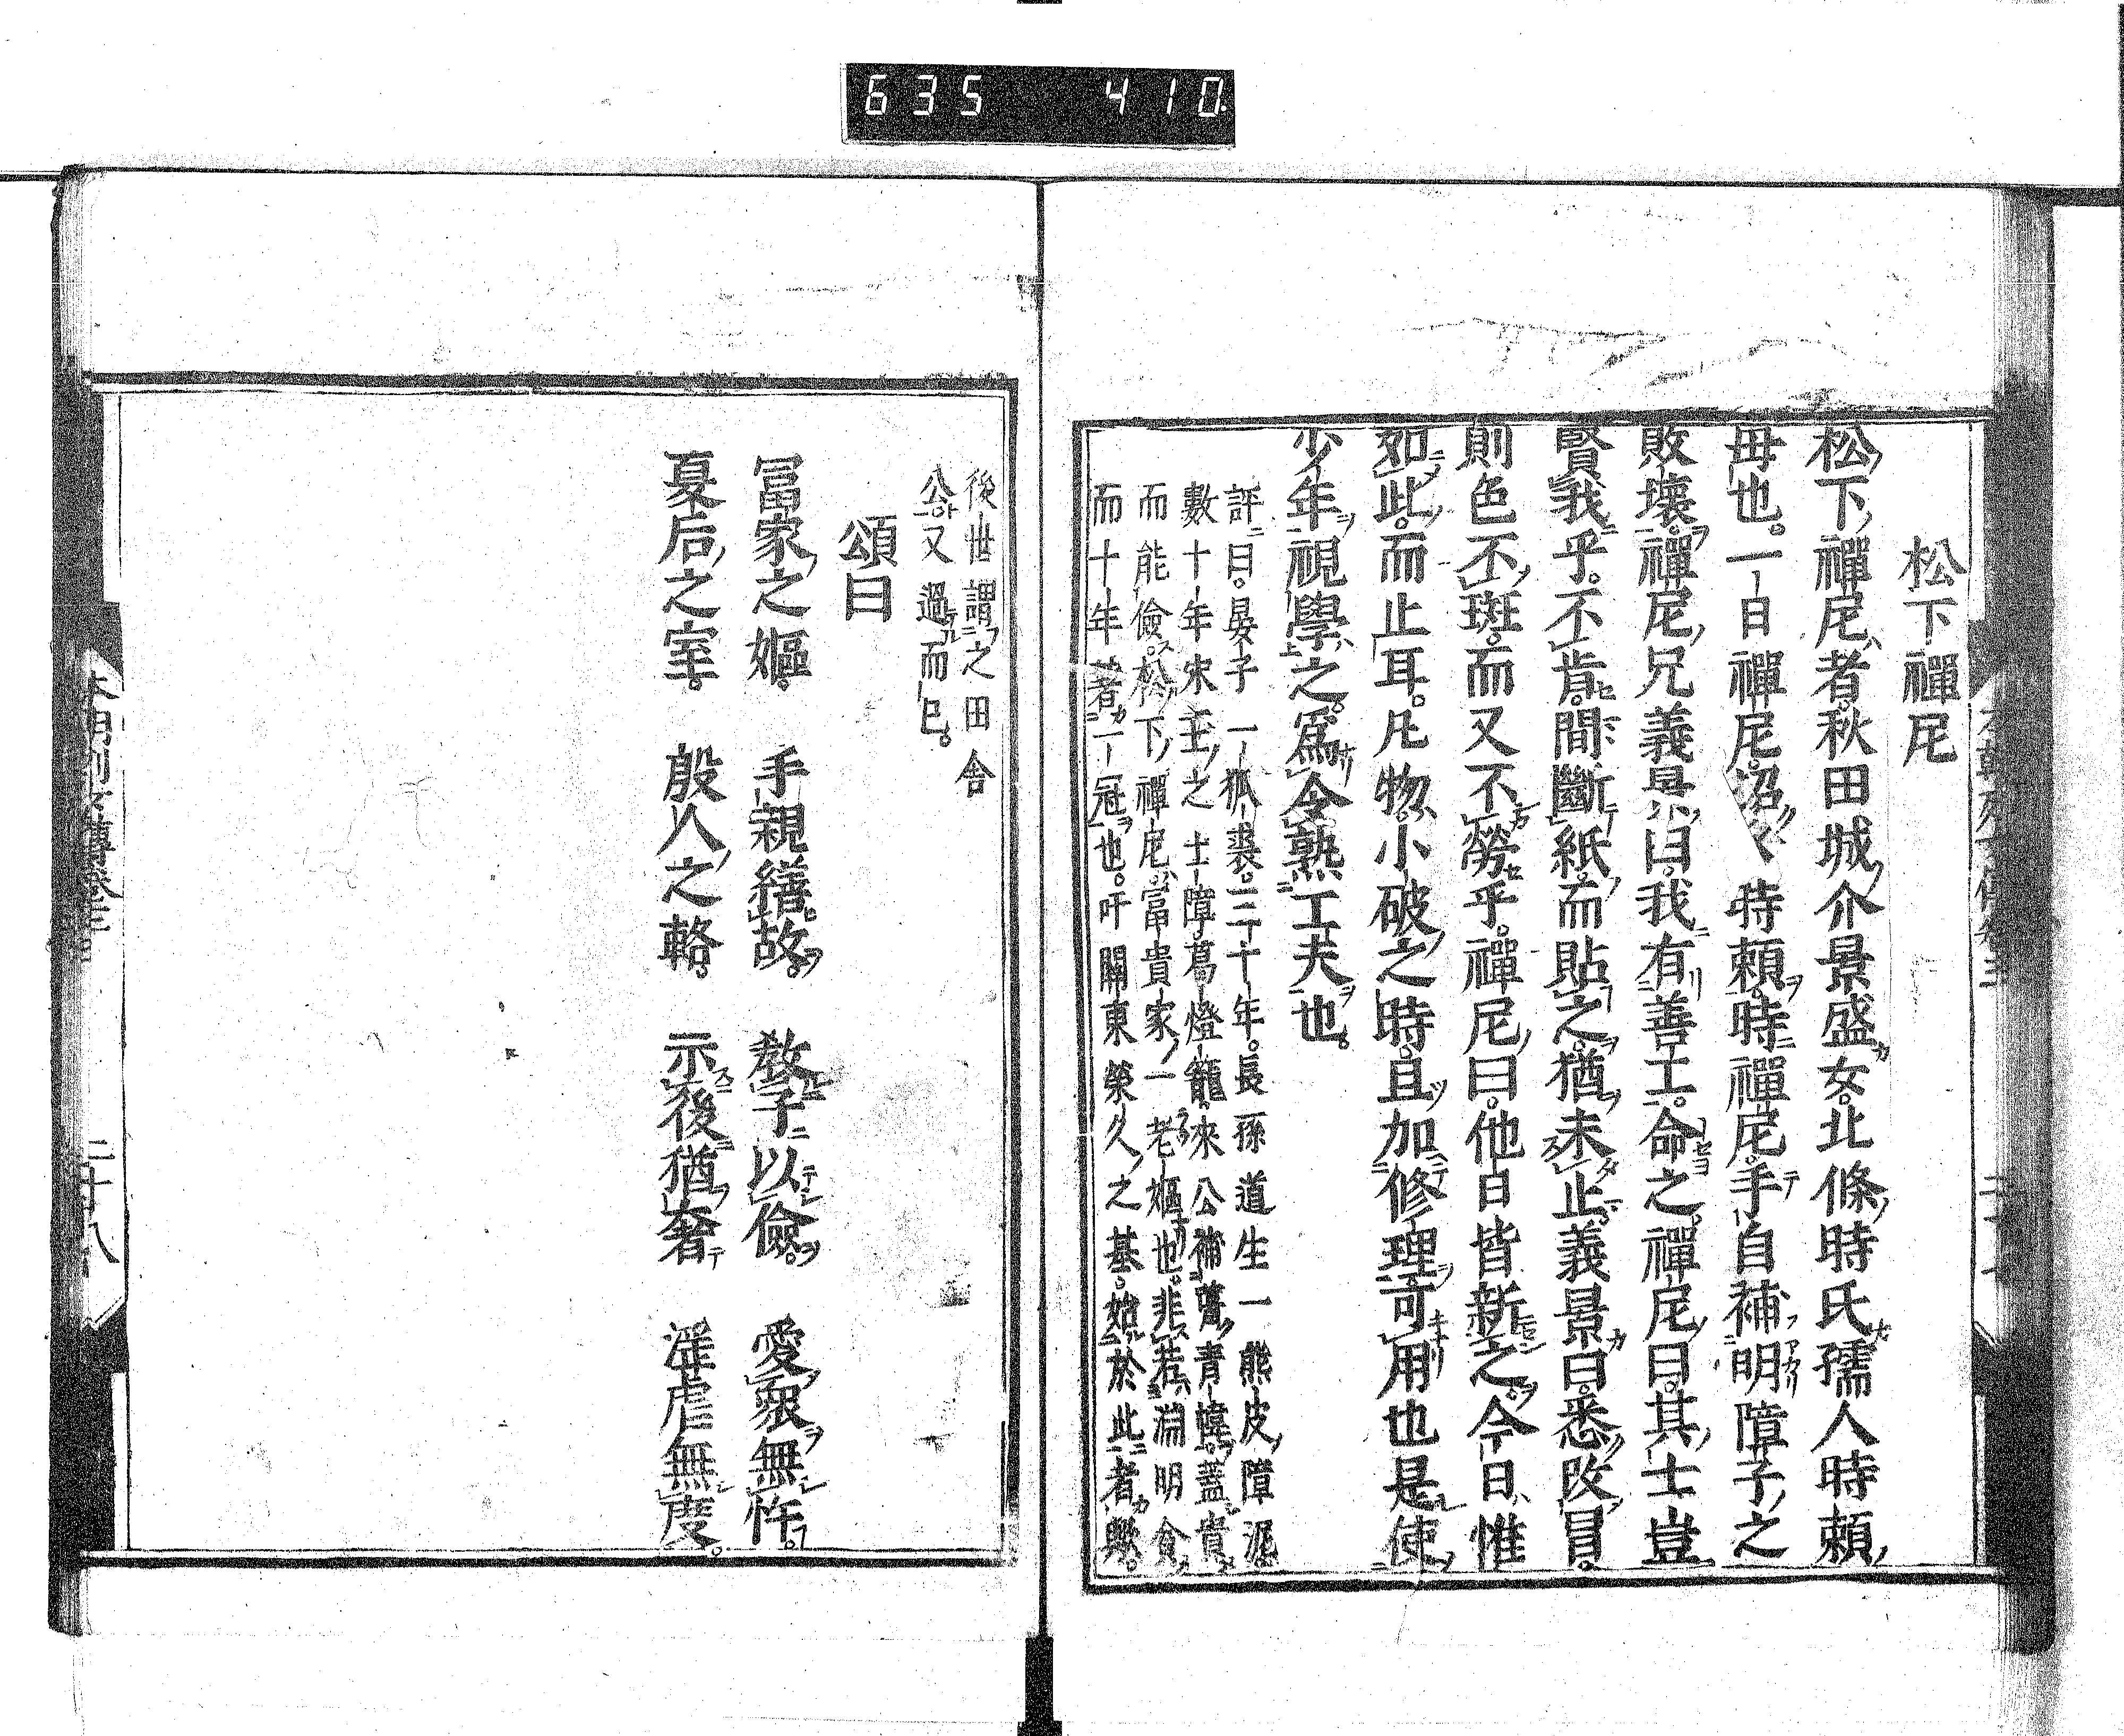 635 410
松下禪尼
松下禪尼者。秋田城介景盛女。北條時氏孺人時賴
母也。一日禪尼招時賴。時禪尼。手自補明障子之
敗壞。禪尼兄義景曰。我有善工。命之。禪尼曰。其士豈
賢我乎。不肯。間斷紙而貼之。猶未止。義景曰。悉改
則色不斑。而又不勞乎。禪尼曰。他日皆新之。今日惟
如此。而止耳。凡物。小破之時。且加修理可用也。是使
少年視學之。爲令熟工夫也。
評曰。晏子一狐裘。三十年。長孫道生一熊皮障泥
數十年。宋主之土障。葛燈籠。來公補青幃。蓋貴
而能儉。松下禪尼。富貴家一老嫗也。非若淵明貧
而十年著一冠也。吁關東榮久之基。始於此者歟。
後世謂之田舍
公又過而已。
頌曰
冨家之嫗。手親繕故。教子以儉。愛衆無忤。
夏后之室。殷人之輅。示後猶奢。淫虐無度。
二十八